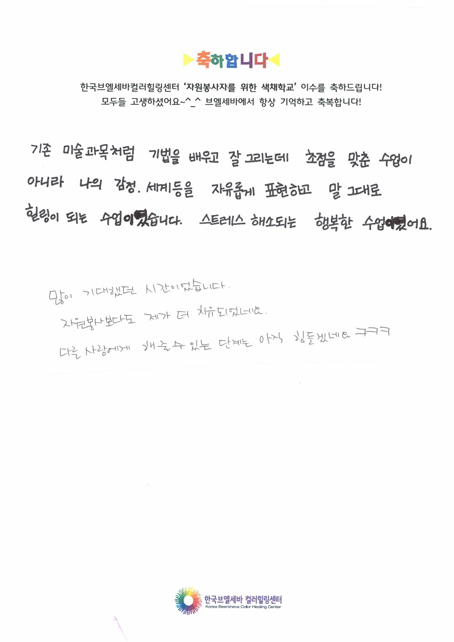 축하합니다
한국브엘세바컬러힐링센터 '자원봉사자를 위한 색채학교' 이수를 축하드립니다!
모두들 고생하셨어요~^_^ 브엘세바에서 항상 기억하고 축복합니다!
기존 미술과목처럼 기법을 배우고 잘 그리는데 초점을 맞춘 수업이
아니라 나의 감정. 세계등을 자유롭게 표현하고 말 그대로
힐링이 되는 수업이였습니다. 스트레스 해소되는 행복한 수업이였어요.
많이 기대했던 시간이었습니다.
자원봉사보다도 제가 더 치유되었네요.
다른 사람에게 해줄 수 있는 단계는 아직 힘들겠네요 ㅋㅋㅋ
한국브엘세바 컬러힐링센터
Korea Beersheva Color Healing Center